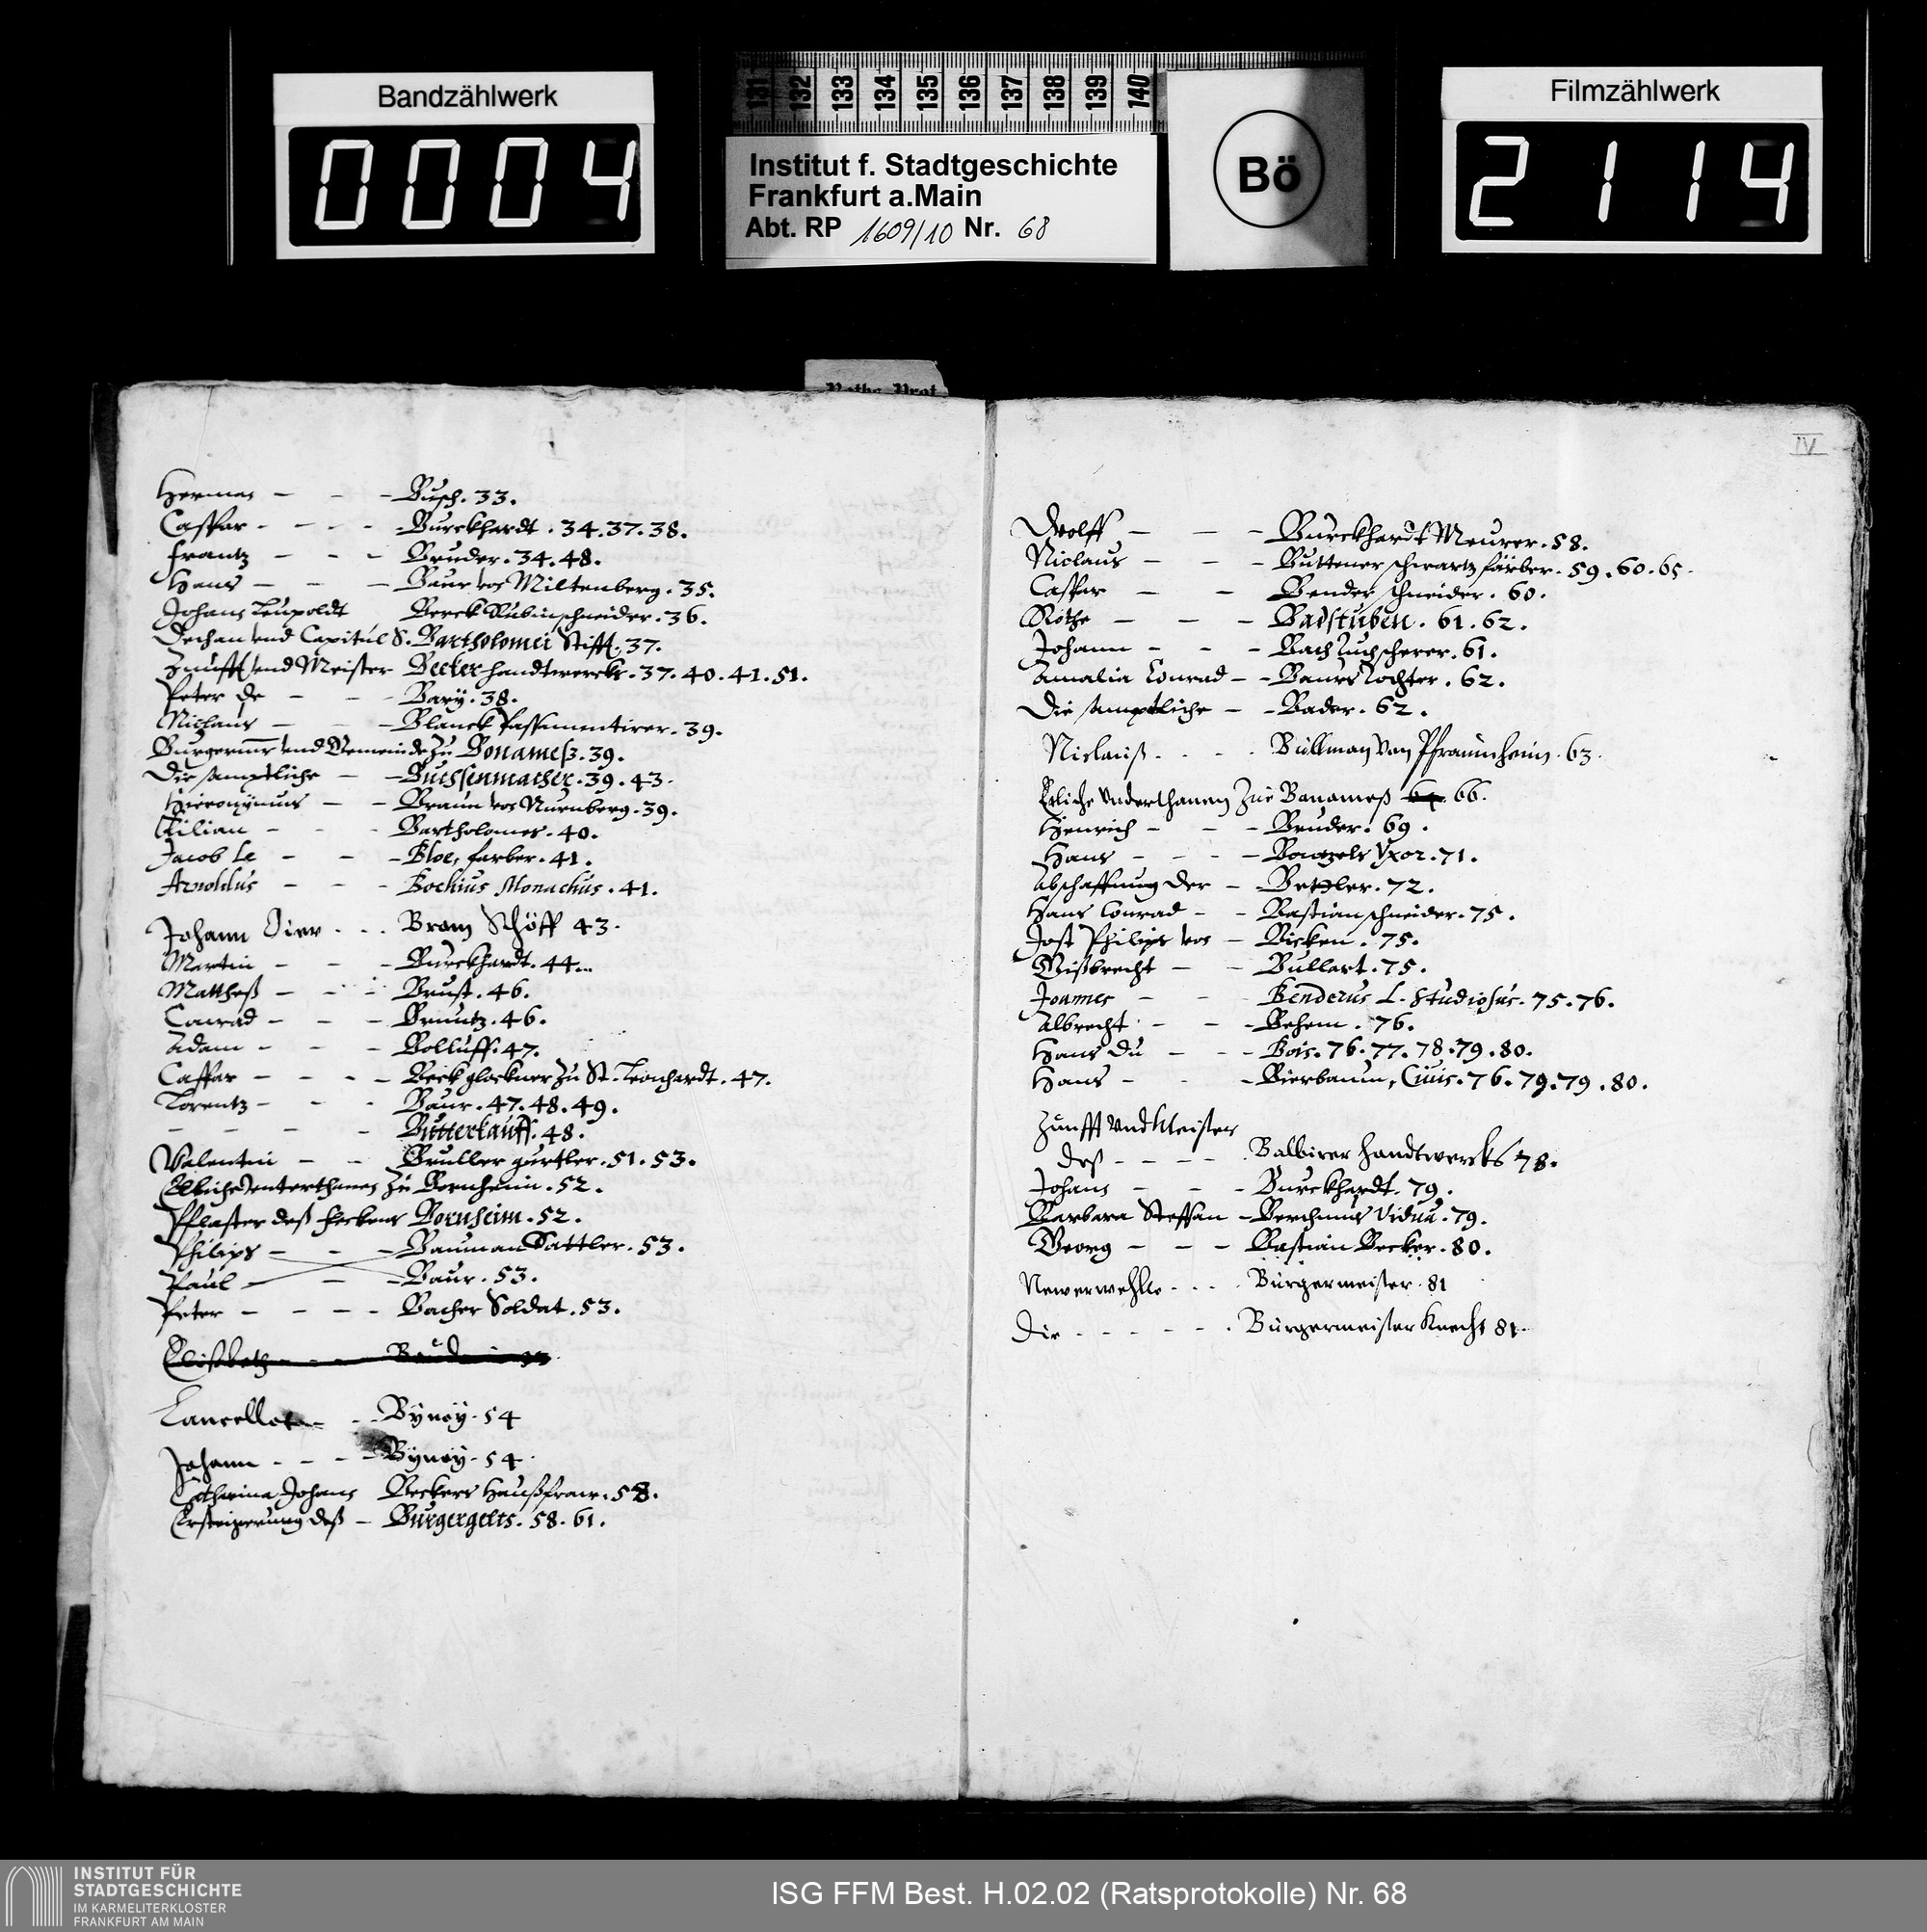 Bandzählwerk
0004
131 132 133 134 135 136 137 138 139 140
Institut f. Stadtgeschichte
Frankfurt a.Main
Abt. RP 1609/10 Nr. 68
Bö
Filmzählwerk
2114
Raths-Prot
Herman - - - Busch. 33.
Caspar - - - - Burckhardt. 34. 37. 38.
Frantz - - - Bruder. 34. 48.
Hans - - - Baur von Miltenberg. 35.
Johann Leupoldt Berck Rubinschneider. 36.
Dechan vnd Capitul S. Bartholomei Stifft. 37.
Zunfft vnd Meister Becker handtwercks. 37. 40. 41. 51.
Peter de - - - Bary. 38.
Niclaus - - - Blanck Passmentirer. 39.
Burgermr vnd Gemeinde zu Bonameß. 39.
Die samptliche - - Buchsenmacher. 39. 43.
Hieronymus - - Braun von Nurnberg. 39.
Kilian - - - Bartholomes. 40.
Jacob le - - - Bloe, farber. 41.
Arnoldus - - - Bockius Monachus. 41.
Johann - - - Brom Schöff 43.
Martin - - - Burckhardt. 44.
Mattheß - - - Brust. 46.
Conrad - - - Bruntz. 46.
Adam - - - Bolluff. 47.
Caspar - - - - Beck glockner zu St. Leonhardt. 47.
Lorentz - - - Baur. 47. 48. 49.
- - - - Butterkauff. 48.
Valentin - - Bruller gürtler. 51. 53.
Etliche vnterthanen zu Bornheim. 52.
Pflaster deß fleckens Bornheim. 52.
Philips - - - Bauman Sattler. 53.
Paul - - - Baur. 53.
Peter - - - - Bacher Soldat. 53.
Elisbeth - - -
Lancellot - - Bynoy. 54
Johann - - - - Bynoy. 54.
Catharina Johans Beckers Haußfraw. 58.
Ersteigerung deß - Burgergelts. 58. 61.
IV
Wolff - - - Burckhardt Meurer. 58.
Niclaus - - - Buttener schwartzfärber. 59. 60. 65.
Caspar - - Bender schneider. 60.
Rothe - - - Badstuben. 61. 62.
Johann - - - Bach Tuchscherer. 61.
Amalia Conrad - - Baurs Tochter. 62.
Die samptliche - - Bader. 62.
Niclauß - - - - Bullman von Pfraunheim. 63.
Etliche Vnderthanen zue Banameß 64. 66.
Henrich - - - Bruder. 69.
Hans - - - - Vxor. 71.
Abschaffung der - Bettler. 72.
Hans Conrad - - Bastian schneider. 75.
Jost Philips von - Bicken. 75.
Gißbrecht - - Bullart. 75.
Joannes - - - Benderus L. Studiosus. 75. 76.
Albrecht - - - Behem. 76.
Hans du - - - Bois. 76. 77. 78. 79. 80.
Hans - - - Bierbaum, Ciuis. 76. 79. 79. 80.
Zunfft vnd Meister
deß - - - - Balbirer handtwercks 78.
Johans - - - Burckhardt. 79.
Barbara Steffan - Vidua. 79.
Georg - - - Bastian Becker. 80.
Newerwehlte - - - - Burgermeister. 81
Die - - - - - - Burgermeister Knecht 81.
INSTITUT FÜR
STADTGESCHICHTE
IM KARMELITERKLOSTER
FRANKFURT AM MAIN
ISG FFM Best. H.02.02 (Ratsprotokolle) Nr. 68